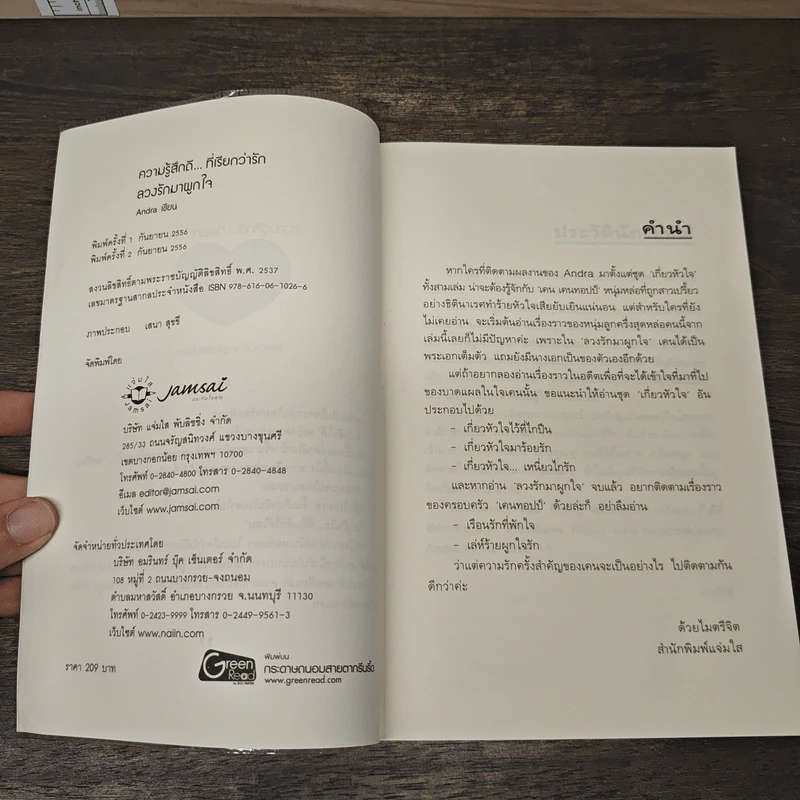 ความรู้สึกดี... ที่เรียกว่ารัก
ลวงรักมาผูกใจ
Andra เขียน
พิมพ์ครั้งที่ 1 กันยายน 2556
พิมพ์ครั้งที่ 2 กันยายน 2556
สงวนลิขสิทธิ์ตามพระราชบัญญัติลิขสิทธิ์ พ.ศ. 2537
เลขมาตรฐานสากลประจำหนังสือ ISBN 978-616-06-1026-6
ภาพประกอบ เสนา สุขขี
จัดพิมพ์โดย
แจ่มใส
jamsai
Jamsai
บริษัท แจ่มใส พับลิชชิ่ง จำกัด
285/33 ถนนจรัญสนิทวงศ์ แขวงบางขุนศรี
เขตบางกอกน้อย กรุงเทพฯ 10700
โทรศัพท์ 0-2840-4800 โทรสาร 0-2840-4848
อีเมล editor@jamsai.com
เว็บไซต์ www.jamsai.com
จัดจำหน่ายทั่วประเทศโดย
บริษัท อมรินทร์ บุ๊ค เซ็นเตอร์ จำกัด
108 หมู่ที่ 2 ถนนบางกรวย-จงถนอม
ตำบลมหาสวัสดิ์ อำเภอบางกรวย จ.นนทบุรี 11130
โทรศัพท์ 0-2423-9999 โทรสาร 0-2449-9561-3
เว็บไซต์ www.naiin.com
ราคา 209 บาท
Green Read
พิมพ์บน
กระดาษถนอมสายตากรีนรี้ด
www.greenread.com
คำนำ
หากใครที่ติดตามผลงานของ Andra มาตั้งแต่ชุด 'เกี่ยวหัวใจ'
ทั้งสามเล่ม น่าจะต้องรู้จักกับ 'เคน เคนทอปป์' หนุ่มหล่อที่ถูกสาวเปรี้ยว
อย่างธิตินาเรศทำร้ายหัวใจเสียยับเยินแน่นอน แต่สำหรับใครที่ยัง
ไม่เคยอ่าน จะเริ่มต้นอ่านเรื่องราวของหนุ่มลูกครึ่งสุดหล่อคนนี้จาก
เล่มนี้เลยก็ไม่มีปัญหาค่ะ เพราะใน 'ลวงรักมาผูกใจ' เคนได้เป็น
พระเอกเต็มตัว แถมยังมีนางเอกเป็นของตัวเองอีกด้วย
แต่ถ้าอยากลองอ่านเรื่องราวในอดีตเพื่อที่จะได้เข้าใจที่มาที่ไป
ของบาดแผลในใจเคนนั้น ขอแนะนำให้อ่านชุด 'เกี่ยวหัวใจ' อัน
ประกอบไปด้วย
- เกี่ยวหัวใจไว้ที่ไกปืน
- เกี่ยวหัวใจมาร้อยรัก
- เกี่ยวหัวใจ... เหนี่ยวไกรัก
และหากอ่าน 'ลวงรักมาผูกใจ' จบแล้ว อยากติดตามเรื่องราว
ของครอบครัว 'เคนทอปป์' ด้วยล่ะก็ อย่าลืมอ่าน
- เรือนรักที่พักใจ
- เล่ห์ร้ายผูกใจรัก
ว่าแต่ความรักครั้งสำคัญของเคนจะเป็นอย่างไร ไปติดตามกัน
ดีกว่าค่ะ
ด้วยไมตรีจิต
สำนักพิมพ์แจ่มใส